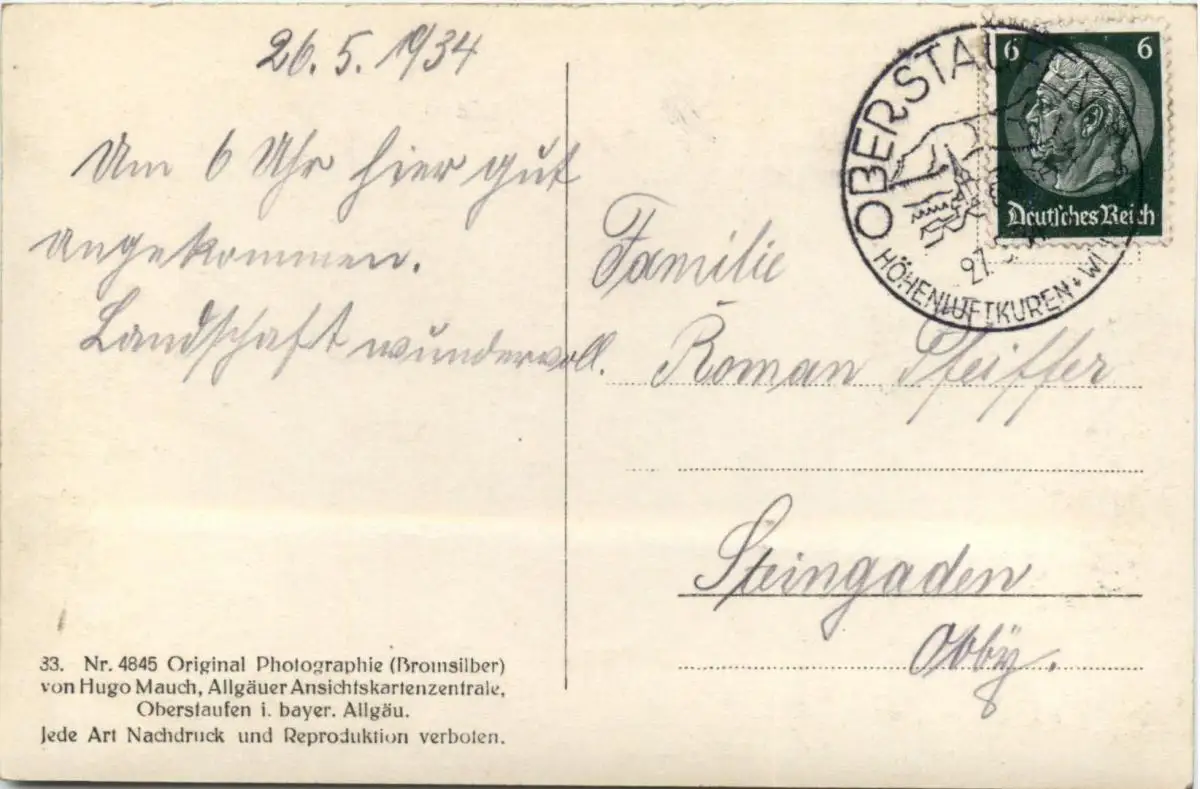 26.5.1934
Um 6 Uhr hier gut
angekommen.
Landschaft wundervoll.
33. Nr. 4845 Original Photographie (Bromsilber)
von Hugo Mauch, Allgäuer Ansichtskartenzentrale,
Oberstaufen i. bayer. Allgäu.
Jede Art Nachdruck und Reproduktion verboten.
OBERSTAUFEN
HÖHENLUFTKUREN
27
6 6
Deutsches Reich
Familie
Roman Pfeiffer
Steingaden
Obby.